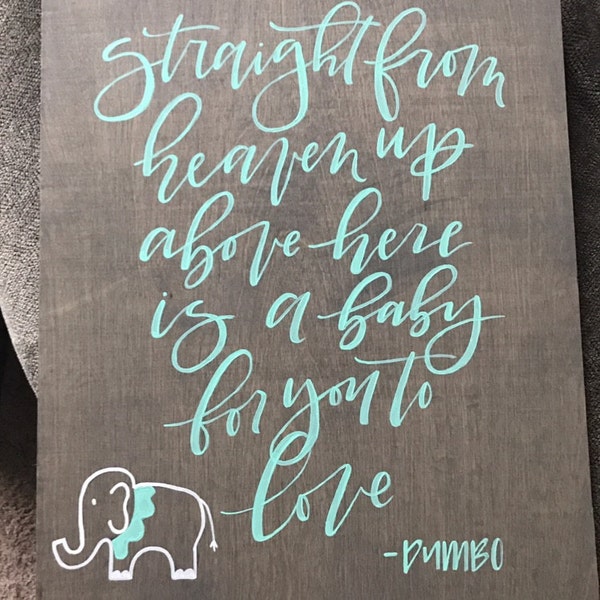 straight from
heaven up
above here
is a baby
for you to
love
-DUMBO